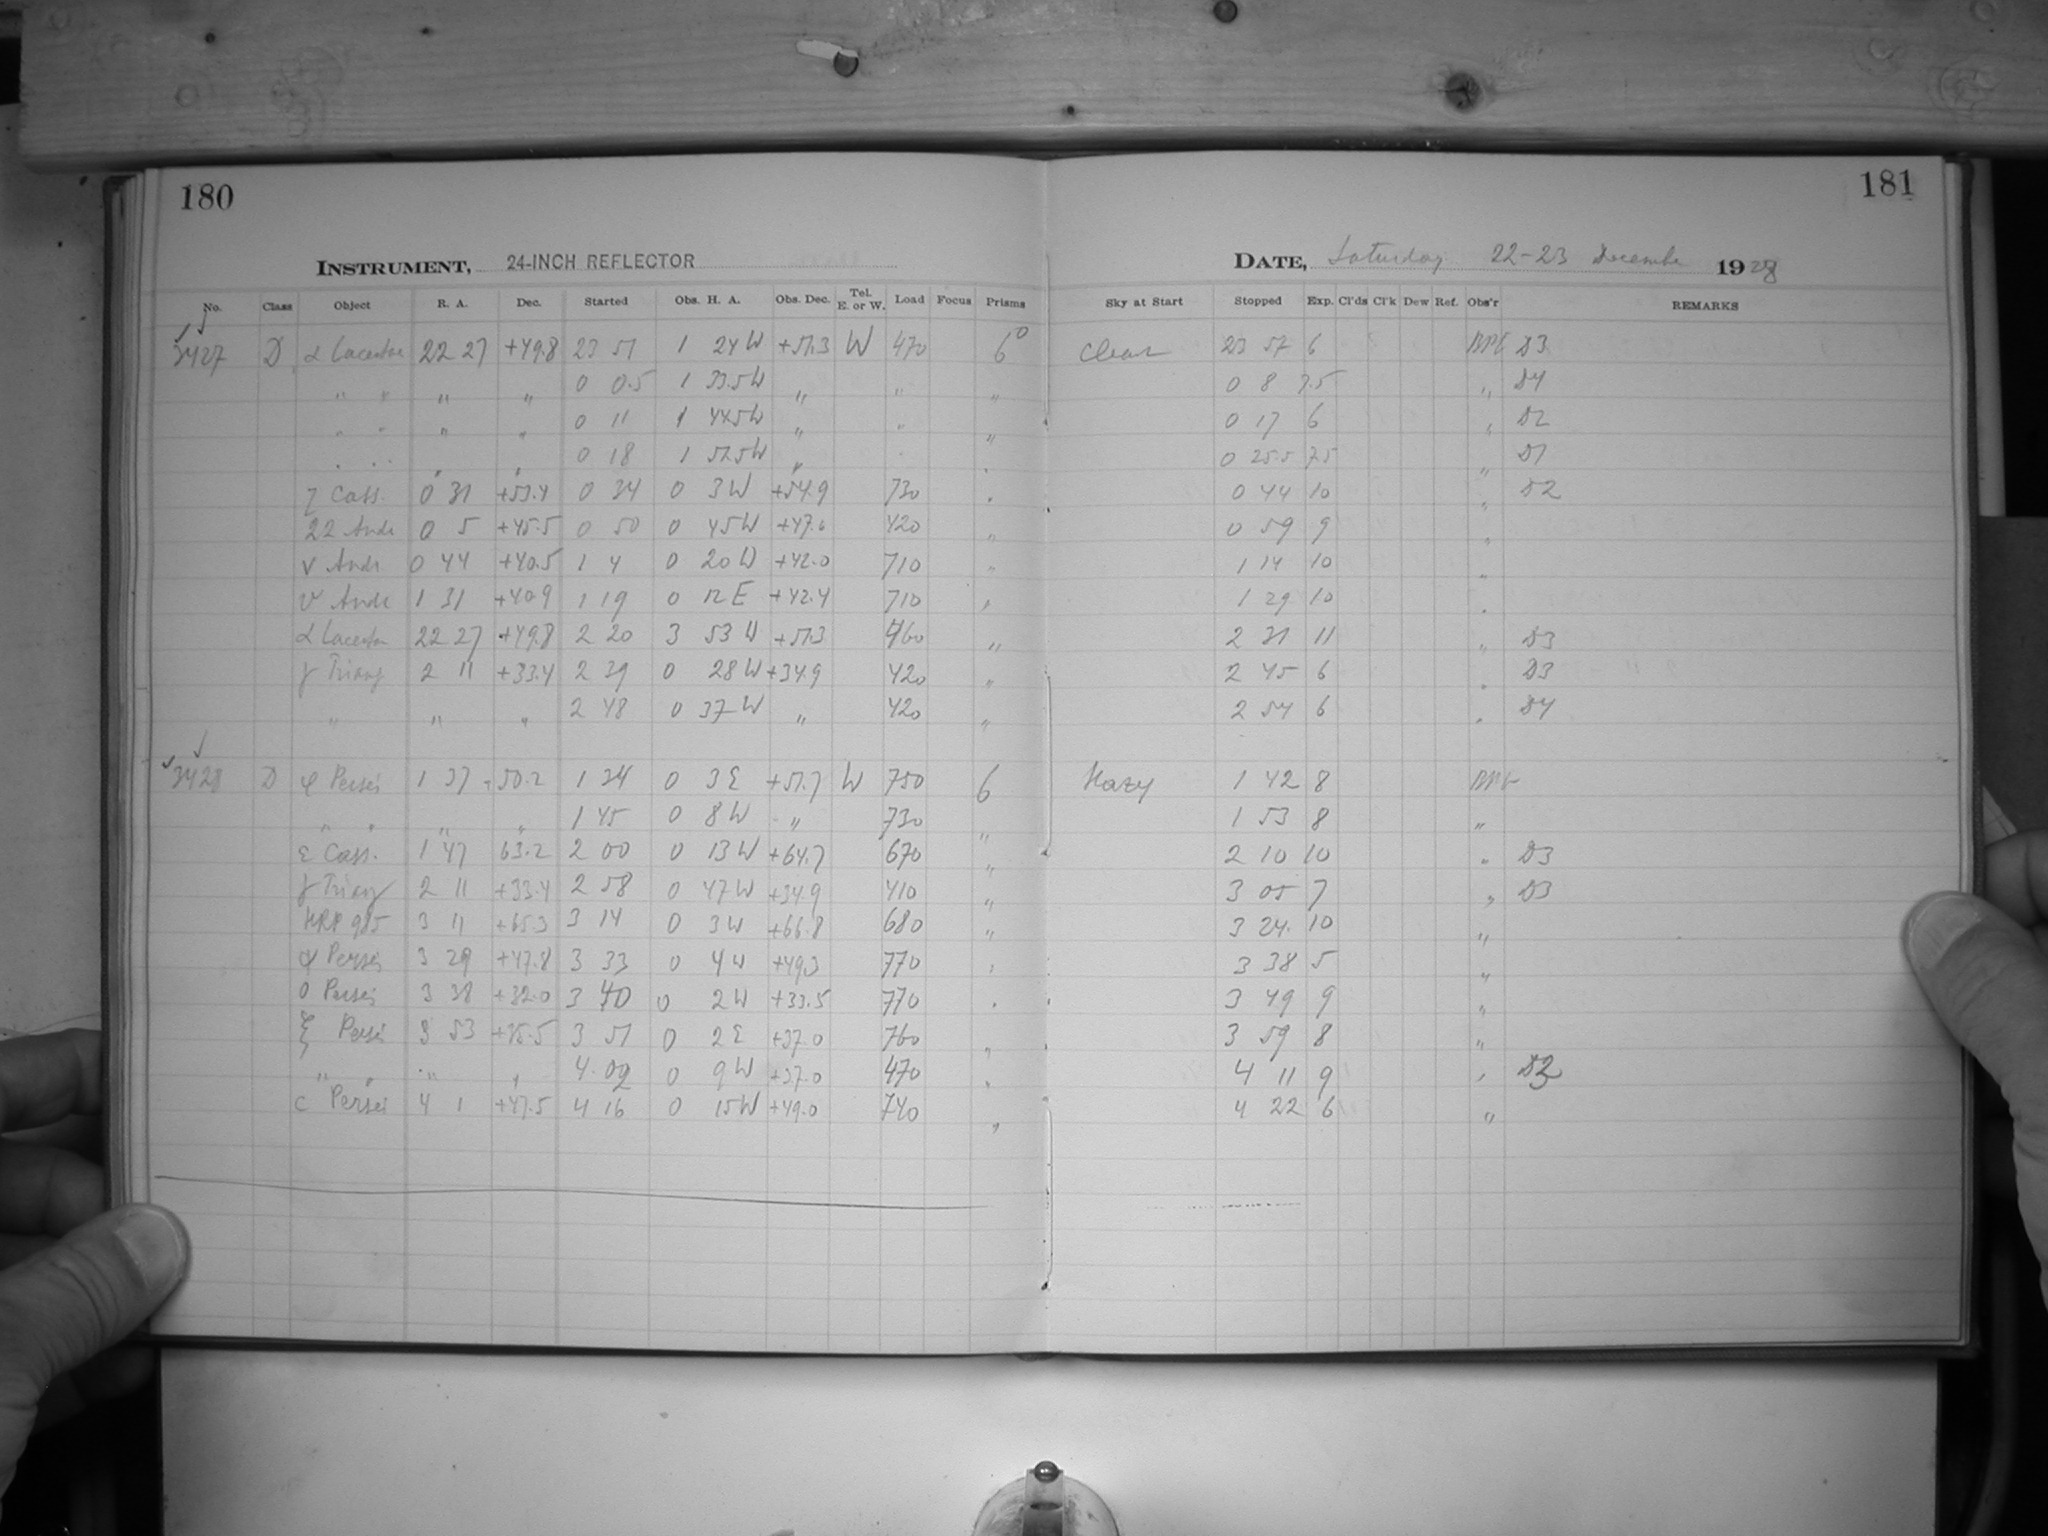 180
181
INSTRUMENT, 24-INCH REFLECTOR
DATE, Saturday 22-23 December 1928
No. Class Object R. A. Dec. Started Obs. H. A. Obs. Dec. Tel. E. or W. Load Focus Prisms Sky at Start Stopped Exp. Cl'ds Cl'k Dew Ref. Obs'r REMARKS
3427 D α Lacertae 22 27 +49.8 23 51 1 24 W +51.3 W 470 6° Clear 23 57 6 D3
" " " " 0 0.5 1 33.5 W " " " 0 8 7.5 " D4
" " " " 0 11 1 44.5 W " " " 0 17 6 " D2
" " " " 0 18 1 51.5 W " " " 0 25.5 7.5 " D1
ζ Cass. 0 31 +53.4 0 34 0 3 W +54.9 730 " 0 44 10 " D2
22 Andr 0 5 +45.5 0 50 0 45 W +47.0 420 " 0 59 9 "
ν Andr 0 44 +40.5 1 4 0 20 W +42.0 710 " 1 14 10 "
υ Andr 1 31 +40.9 1 19 0 12 E +42.4 710 " 1 29 10 "
α Lacertae 22 27 +49.8 2 20 3 53 W +51.3 460 " 2 31 11 " D3
γ Triang 2 11 +33.4 2 39 0 28 W +34.9 420 " 2 45 6 " D3
" " " 2 48 0 37 W " 420 " 2 54 6 " D4
3428 D φ Persei 1 37 +50.2 1 34 0 3 E +51.7 W 750 6 Hazy 1 42 8
" " " " 1 45 0 8 W " 730 " 1 53 8 "
ε Cass. 1 47 63.2 2 00 0 13 W +64.7 670 " 2 10 10 " D3
γ Triang 2 11 +33.4 2 58 0 47 W +34.9 410 " 3 05 7 " D3
985 3 11 +65.3 3 14 0 3 W +66.8 680 " 3 24 10 "
ψ Persei 3 29 +47.8 3 33 0 4 W +49.3 770 " 3 38 5 "
ο Persei 3 38 +32.0 3 40 0 2 W +33.5 770 " 3 49 9 "
ξ Persei 3 53 +35.5 3 51 0 2 E +37.0 760 " 3 59 8 "
" " " " 4 02 0 9 W +37.0 470 " 4 11 9 "
c Persei 4 1 +47.5 4 16 0 15 W +49.0 740 " 4 22 6 "